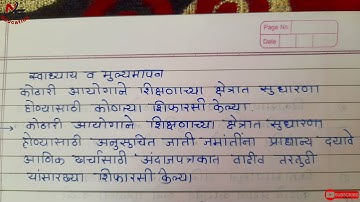 Page No.
Date
स्वाध्याय व मुल्यमापन
कोठारी आयोगाने शिक्षणाच्या क्षेत्रात सुधारणा
होण्यासाठी कोणत्या शिफारसी केल्या.
→ कोठारी आयोगाने शिक्षणाच्या क्षेत्रात सुधारणा
होण्यासाठी अनुसुचित जाती जमातींना प्राधान्य दयावे
आणिक खर्चासाठी अंदाजपत्रकात वाढीव तरतुदी
यांसारख्या शिफारसी केल्या
SUBSCRIBE